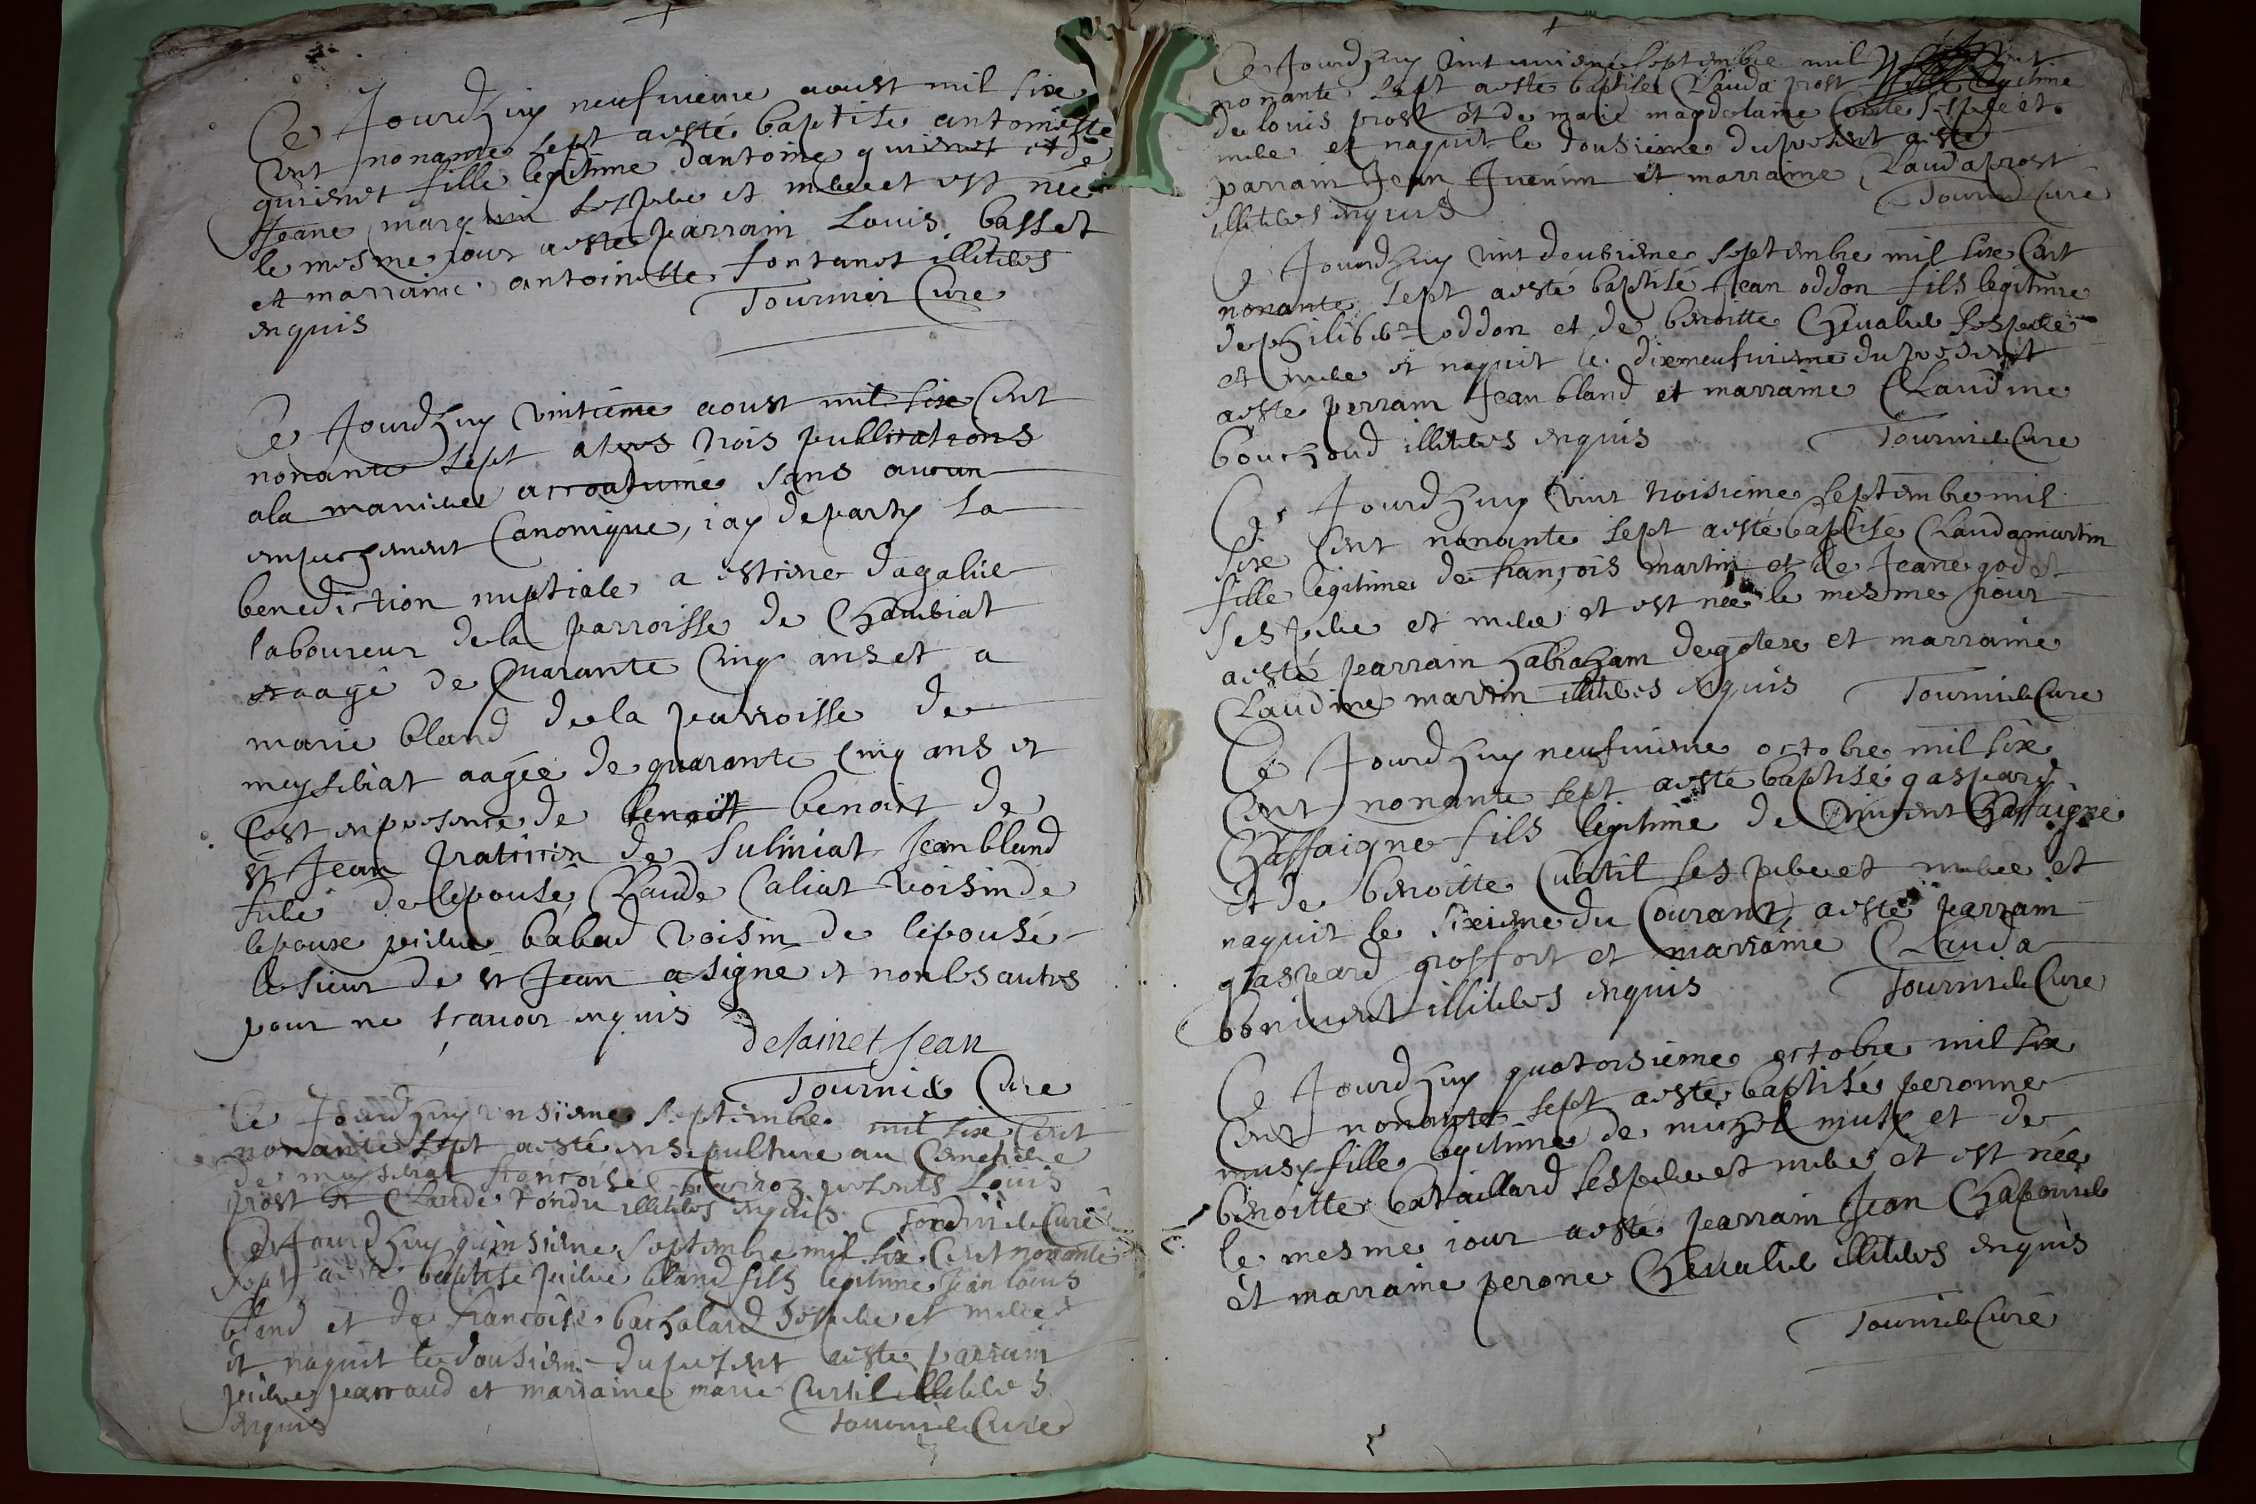 Ce Jourdhuy neufvieme aoust mil sixe
Cent nonante sept aesté baptisée antoinette
quienet fille legitime dantoine quienet et de
Jeane marquin ses pere et mere et est née
le mesme jour aesté parrain Louis basset
et marraine antoinette fontanet illiteres
enquis Tournier Cure
Ce Jourdhuy vintieme aoust mil sixe Cent
nonante sept apres trois publications
ala maniere accoutumé sans aucun
empechement Canonique, jay departy la
benediction nuptiale a estiene dagalier
laboureur dela parroisse de Chambiat
aagé de quarante Cinq ans et a
marie bland dela parroisse de
meyseriat aagée de quarante Cinq ans et
Cest en presence de benoit benoit de
st Jean praticien de Suliniat Jean bland
frere delepouse, Claude Caliat voisin de
lepoux peirre babad voisin de lepouse
le sieur de st Jean a signé et non les autres
pour ne scavoir enquis
deSainct Jean
Tournier Cure
Ce Jourdhuy onsieme septembre mil sixe Cent
nonante sept aesté ensepulturé au Cemetiere
de meyseriat françoise presents Louis
prost et Claude Tondu illiteres enquis Tournier Curé
Ce Jourdhuy quinsieme septembre mil six Cent nonante
sept aesté baptisé peirre bland fils legitime Jean louis
bland et de francoise bachalard ses pere et mere
et naquit le dousieme du present aesté parrain
peirre parraud et marraine marie Curtil illiteres
enquis Tournier Cure
Ce Jourdhuy vint unieme septembre mil Cent
nonante sept aesté baptisée Clauda prost fille legitime
de louis prost et de marie magdelaine Comte ses pere et
mere et naquit le dousieme du present aesté
parrain Jean Juenim et marraine Clauda prost
illiteres enquis Tournier Cure
Ce Jourdhuy vint deusieme septembre mil sixe Cent
nonante sept aesté baptisé Jean oddon fils legitime
de philibert oddon et de benoitte Chevalier ses pere
et mere et naquit le dixneufvieme du present
aesté perrain Jean bland et marraine Claudine
bouchoud illiteres enquis Tournier Cure
Ce Jourdhuy vint troisieme septembre mil
sixe Cent nonante sept aesté baptisé Clauda martin
fille legitime de françois martin et de Jeane godet
ses pere et mere et est née le mesme jour
aesté parrain habraham degolere et marraine
Claudine martin illiteres enquis Tournier Cure
Ce Jourdhuy neufvieme octobre mil sixe
Cent nonante sept aesté baptisé gaspard
Chassaigne fils legitime de Vincent Chassaigne
et de benoitte Curtil ses pere et mere et
naquit le sixieme du Courant, aesté parrain
gaspard grosfort et marraine Clauda
bonivent illiteres enquis Tournier Cure
Ce Jourdhuy quatorsieme octobre mil sixe
Cent nonante sept aesté baptisée peronne
musy fille legitime de michel musy et de
benoitte bataillard ses pere et mere et est née
le mesme jour aesté parrain Jean Chapourel
et marraine perone Chevalier illiteres enquis
Tournier Curé